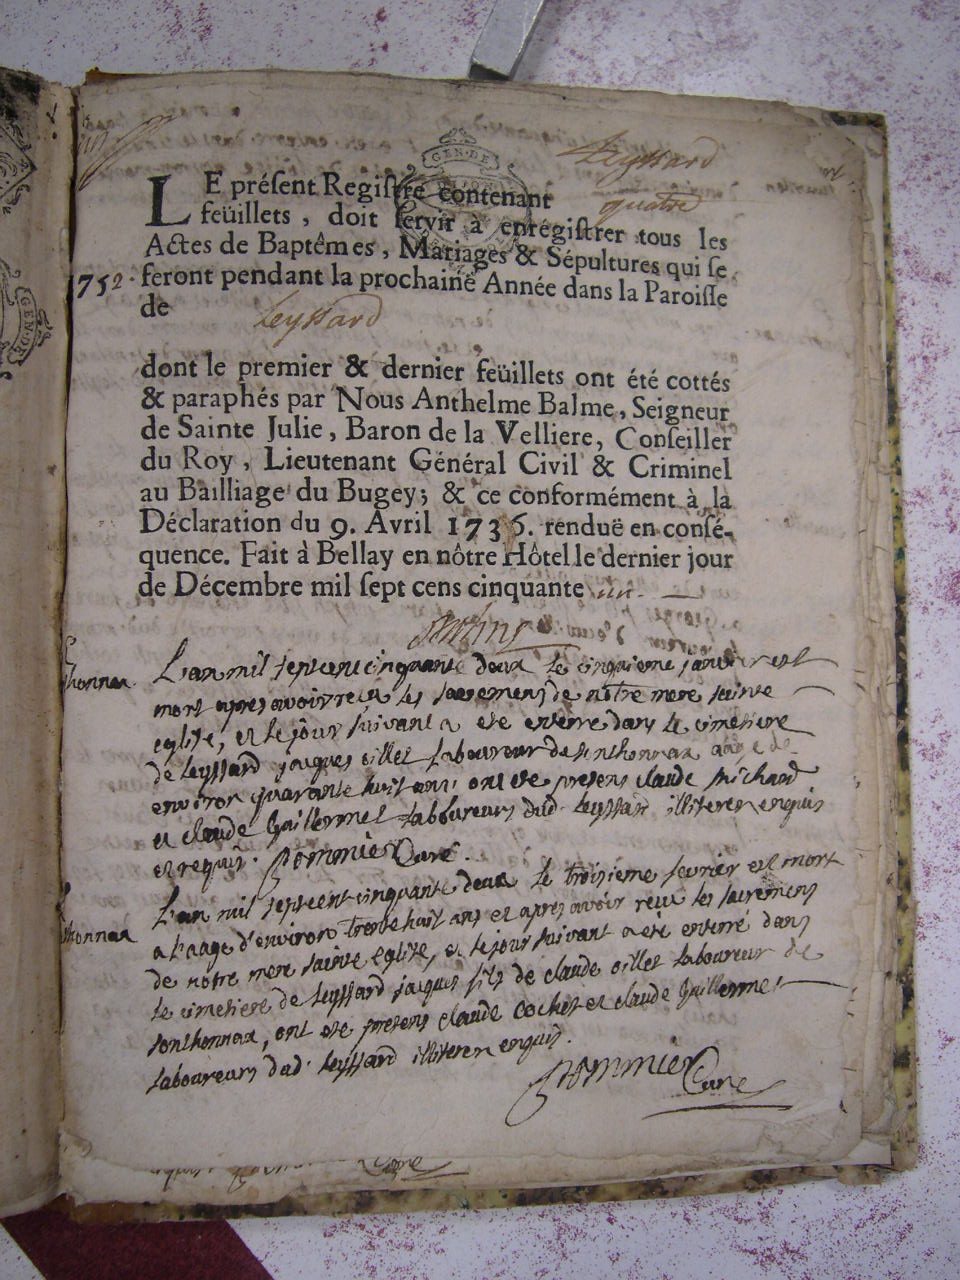 Leyssard
LE présent Registre contenant quatre
feüillets, doit servir à enrégistrer tous les
Actes de Baptêmes, Mariages & Sépultures qui se
1752. feront pendant la prochaine Année dans la Paroisse
de Leyssard
dont le premier & dernier feüillets ont été cottés
& paraphés par Nous Anthelme Balme, Seigneur
de Sainte Julie, Baron de la Velliere, Conseiller
du Roy, Lieutenant Général Civil & Criminel
au Bailliage du Bugey; & ce conformément à la
Déclaration du 9. Avril 1736. renduë en consé-
quence. Fait à Bellay en nôtre Hôtel le dernier jour
de Décembre mil sept cens cinquante un.
L'an mil septcent cinquante deux le cinquieme janvier est
mort apres avoir receu les sacremens de notre mere sainte
eglise, et le jour suivant a eté enterré dans le cimetiere
de Leyssard jacques oillet laboureur de sonthonnax aagé de
environ quarante huit ans ont ete presens claude michard
et claude Guillermet laboureurs dud. Leyssard illiteres enquis
et requis. Pommier Curé.
L'an mil septcent cinquante deux le troisieme fevrier est mort
a l'aage d'environ trente huit ans et apres avoir reçu les sacremens
de notre mere sainte eglise, et le jour suivant a eté enterré dans
le cimetiere de Leyssard jacques fils de claude oillet laboureur de
sonthonnax, ont ete presens claude cochet et claude Guillermet
laboureurs dud. Leyssard illiteres enquis.
Pommier Curé